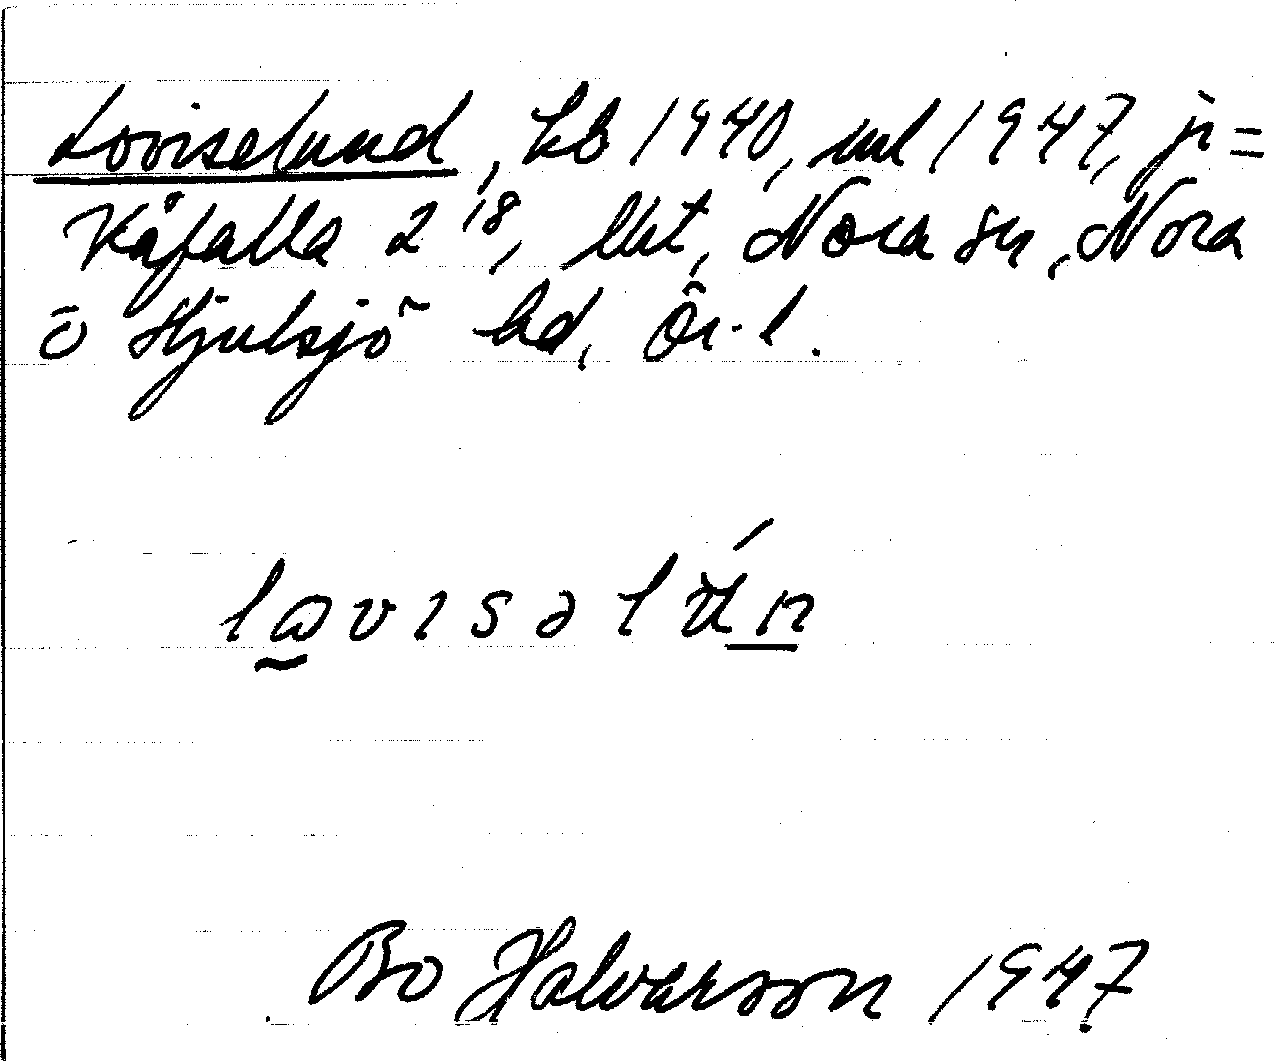 Loviselund, hb 1940, uul 1947, jr =
Kåfalla 2 18, lht, Nora sn, Nora
o Hjulsjö bd, Ör. l.
lavisəlún
Bo Halvarson 1947